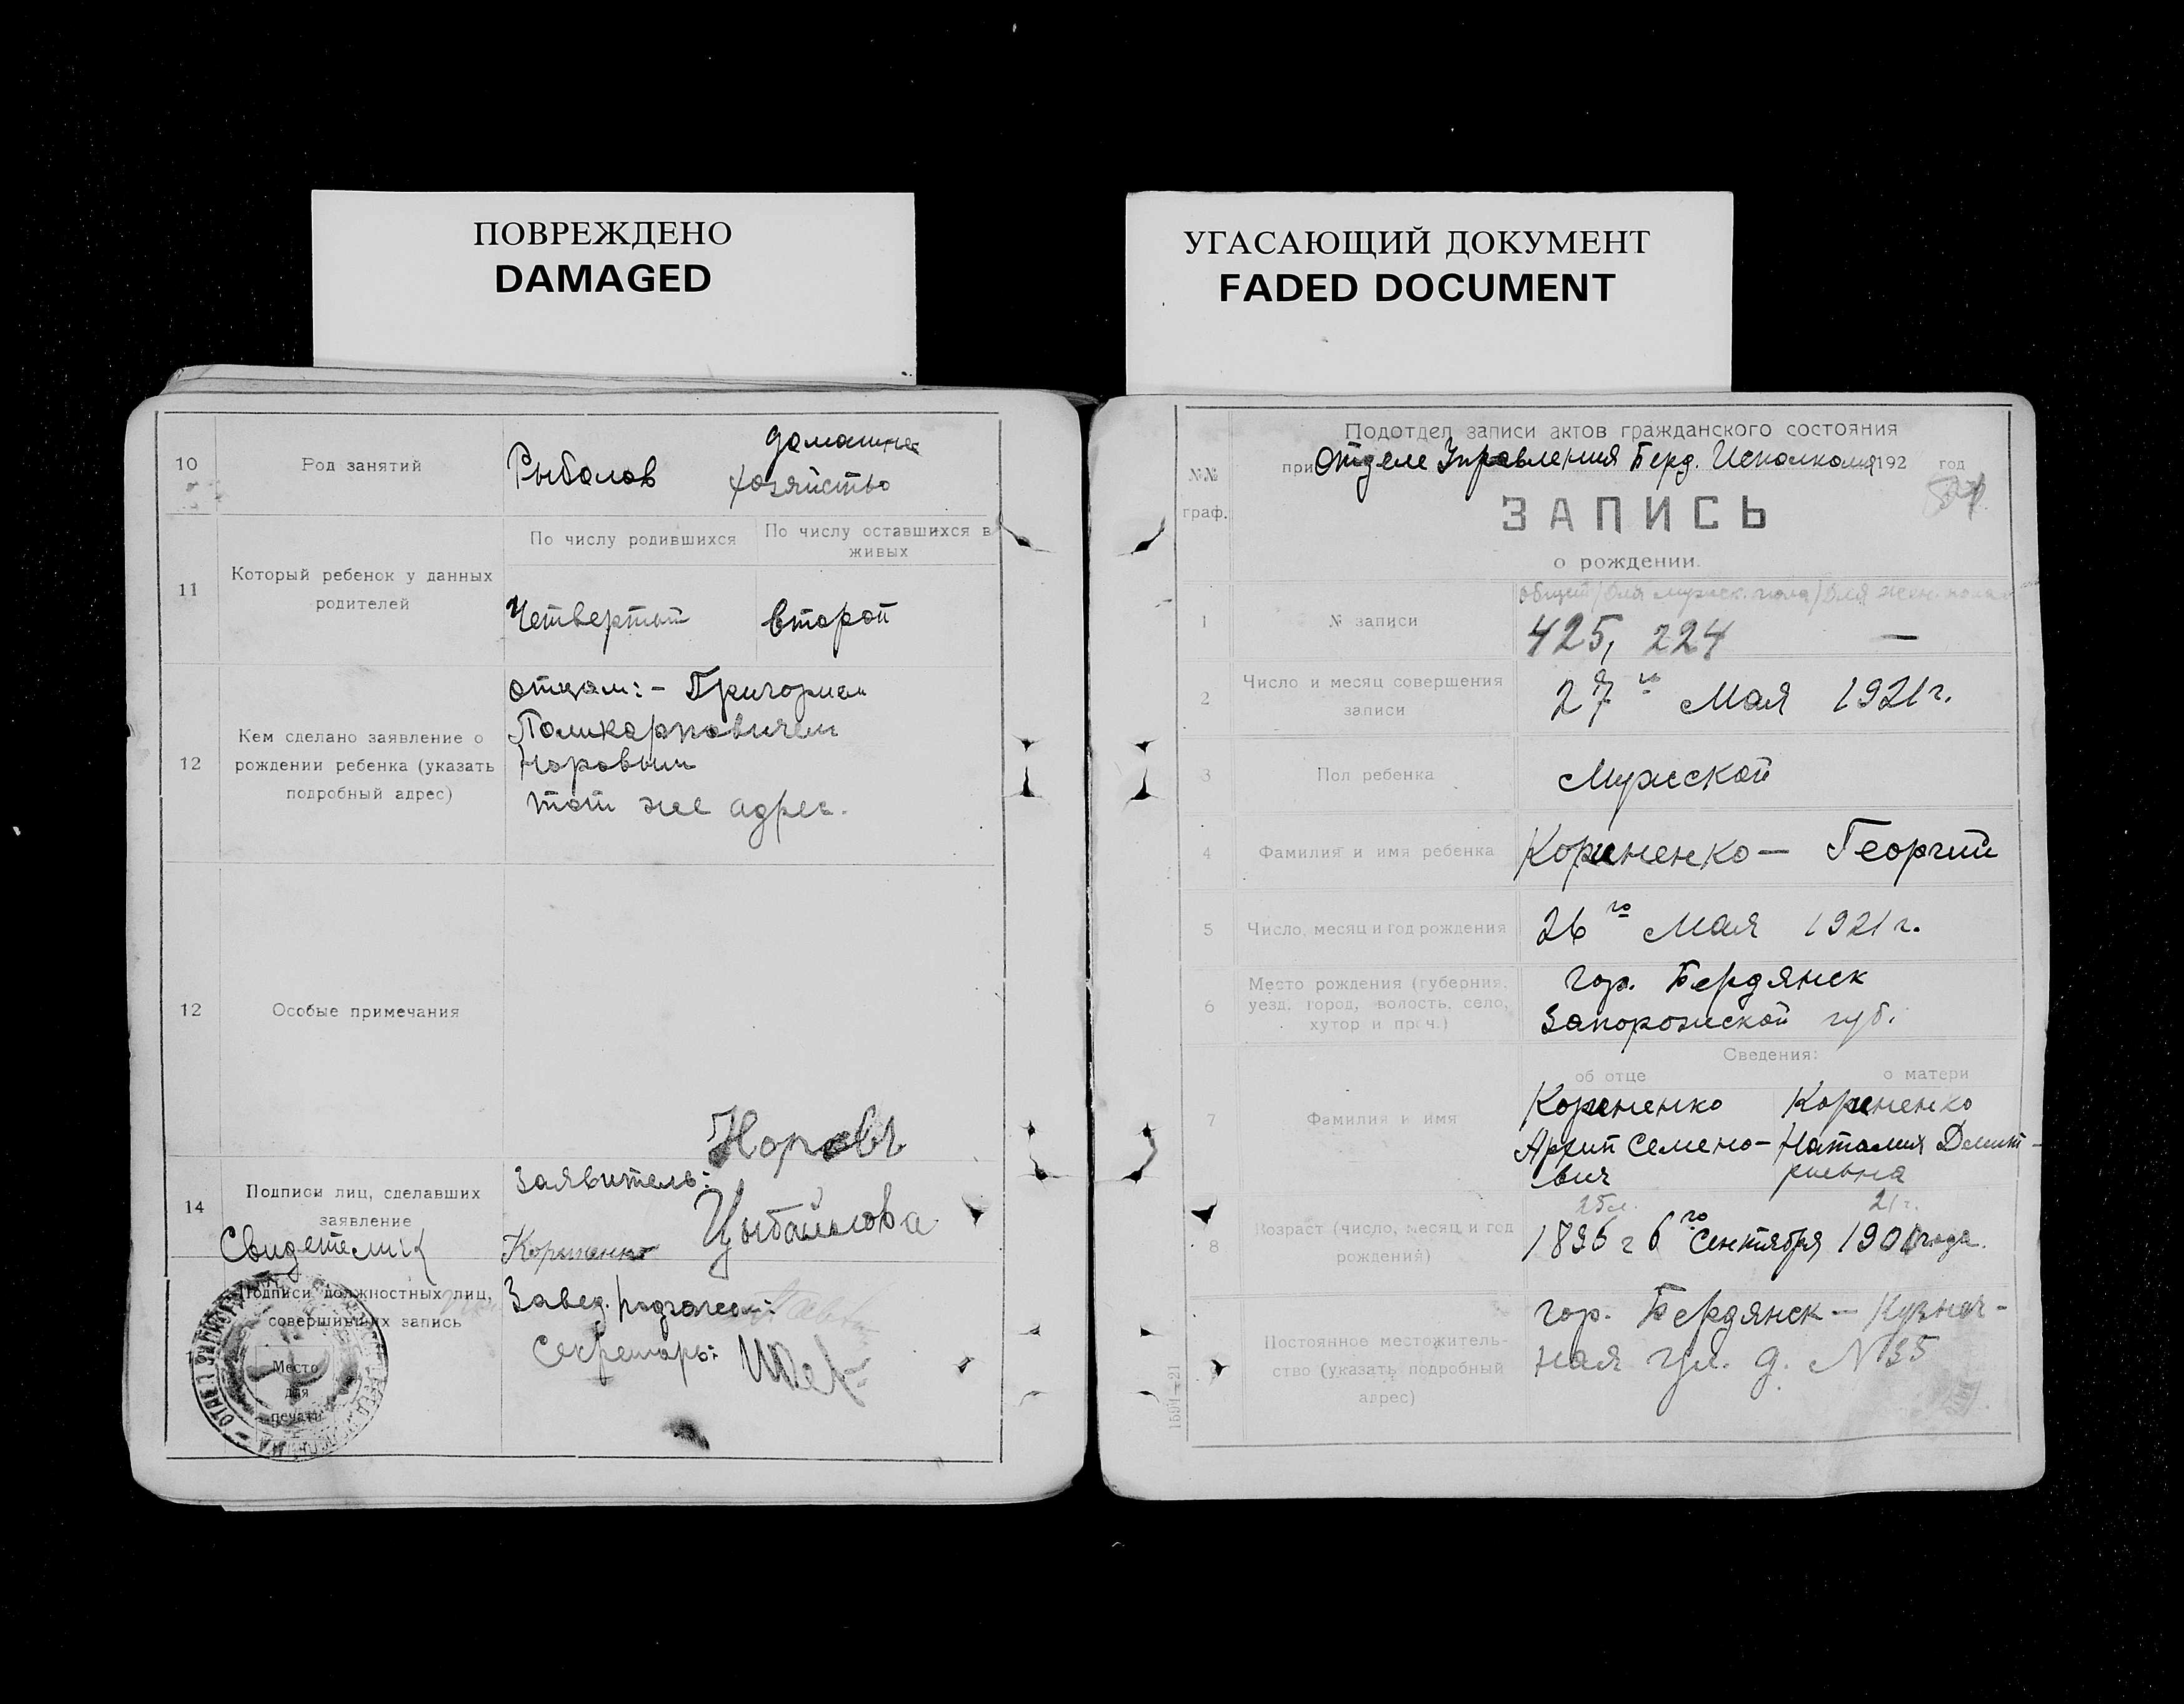 ПОВРЕЖДЕНО
DAMAGED
10
Род занятий
Рыболов
домашнее
хозяйство
11
Который ребенок у данных
родителей
По числу родившихся
По числу оставшихся в
живых
Четвертый
второй
12
Кем сделано заявление о
рождении ребенка (указать
подробный адрес)
отцом:- Григорием
Поликарповичем
Норовым
тот же адрес.
12
Особые примечания
14
Подписи лиц, сделавших
заявление
Свидетели
Заявитель:
Норовъ
Цыбайлова
Подписи должностных лиц,
совершивших запись
Завед. подотдел:
Секретарь:
Место
для
печати
УГАСАЮЩИЙ ДОКУМЕНТ
FADED DOCUMENT
Подотдел записи актов гражданского состояния
при Отделе Управления Берд. Исполкома 192 год
№№
граф.
ЗАПИСЬ
о рождении.
общей / для мужск. пола / для жен. пола
1
№ записи
425, 224 —
2
Число и месяц совершения
записи
27 го Мая 1921 г.
3
Пол ребенка
Мужской
4
Фамилия и имя ребенка
Кориненко — Георгий
5
Число, месяц и год рождения
26 го Мая 1921 г.
6
Место рождения (губерния,
уезд, город, волость, село,
хутор и проч.)
гор. Бердянск
Запорожской губ.
Сведения:
об отце
о матери
7
Фамилия и имя
Кориненко
Архип Семено-
вич
Кориненко
Наталия Дмит-
риевна
8
Возраст (число, месяц и год
рождения)
25 л.
21 г.
1896 г 6 го Сентября 1901 года.
9
Постоянное местожитель-
ство (указать подробный
адрес)
гор. Бердянск — Кузнеч-
ная ул. д. № 35
1591—21